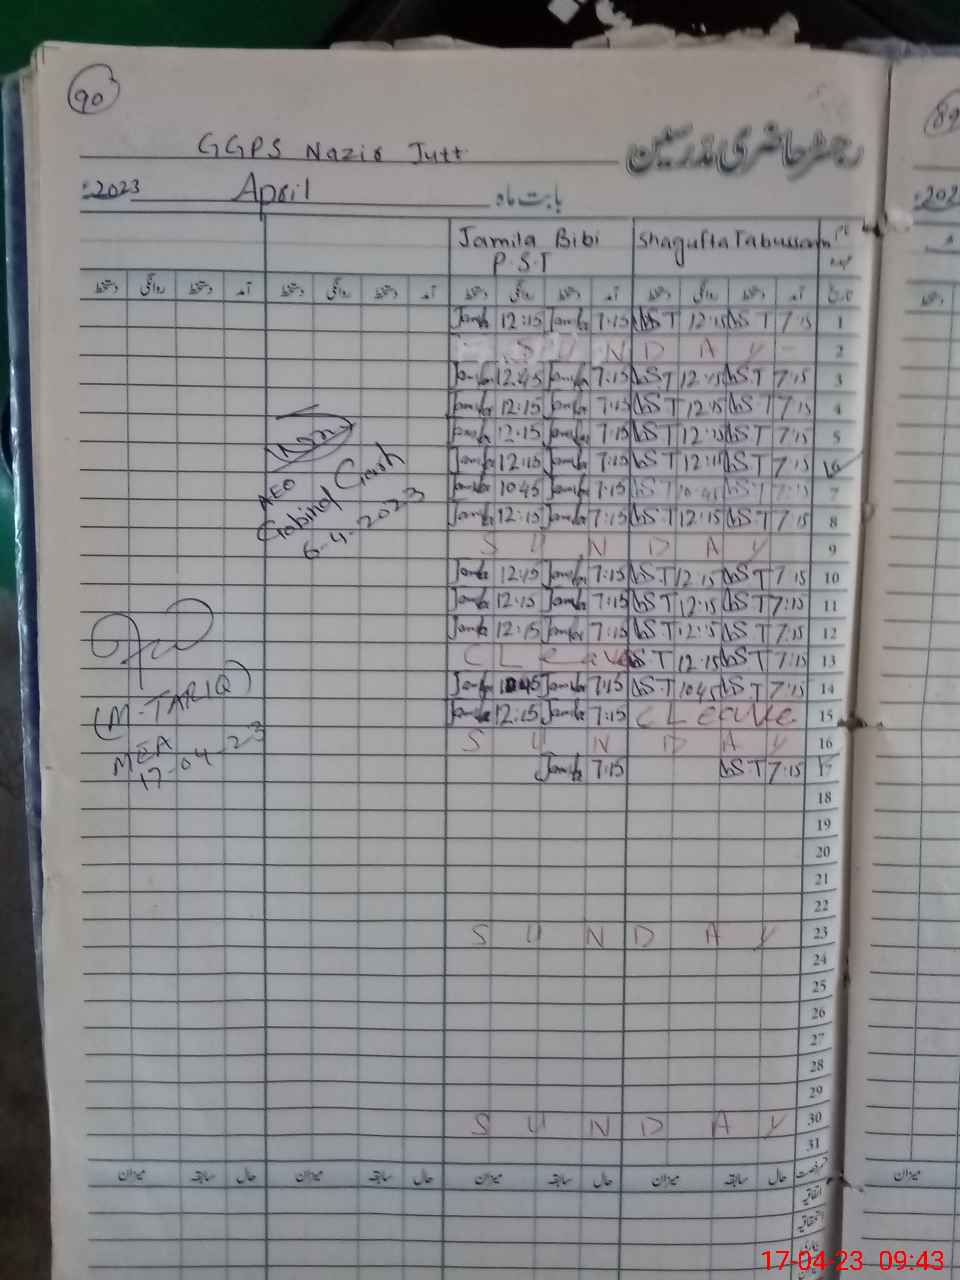 90
GGPS Nazir Jutt رجسٹر حاضری مدرسین
2023 April بابت ماہ
Jamila Bibi Shagufta Tabussam نام
P.S.T عہدہ
دستخط روانگی دستخط آمد دستخط روانگی دستخط آمد دستخط روانگی دستخط آمد دستخط روانگی دستخط آمد تاریخ
Jamila 12:15 Jamila 7:15 S T 12:15 S T 7:15 1
S U N D A Y 2
Jamila 12:45 Jamila 7:15 S T 12:15 S T 7:15 3
Jamila 12:15 Jamila 7:15 S T 12:15 S T 7:15 4
Jamila 12:15 Jamila 7:15 S T 12:15 S T 7:15 5
Jamila 12:15 Jamila 7:15 S T 12:15 S T 7:15 6
Jamila 10:45 Jamila 7:15 S T 10:45 S T 7:15 7
Jamila 12:15 Jamila 7:15 S T 12:15 S T 7:15 8
AEO
Gobind Garh
6-4-2023
S U N D A Y 9
Jamila 12:15 Jamila 7:15 S T 12:15 S T 7:15 10
Jamila 12:15 Jamila 7:15 S T 12:15 S T 7:15 11
Jamila 12:15 Jamila 7:15 S T 12:15 S T 7:15 12
C Leave S T 12:15 S T 7:15 13
Jamila 10:45 Jamila 7:15 S T 10:45 S T 7:15 14
Jamila 12:15 Jamila 7:15 C Leave 15
S U N D A Y 16
Jamila 7:15 S T 7:15 17
(M-TARIQ)
MEA
17-04-23
18
19
20
21
22
S U N D A Y 23
24
25
26
27
28
29
S U N D A Y 30
31
میزان سابقہ حال میزان سابقہ حال میزان سابقہ حال میزان سابقہ حال رخصت
اتفاقیہ
استحقاقیہ
بیماری
89
202
میزان
17-04-23 09:43